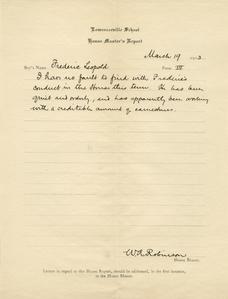 Lawrenceville School
House Master's Report
March 19 1903.
Boy's Name Frederic Leopold Form III
I have no fault to find with Frederic's
conduct in the House this term. He has been
quiet and orderly, and has apparently been working
with a creditable amount of earnestness.
W. A. Robinson
House Master.
Letters in regard to the House Report, should be addressed, in the first instance,
to the House Master.